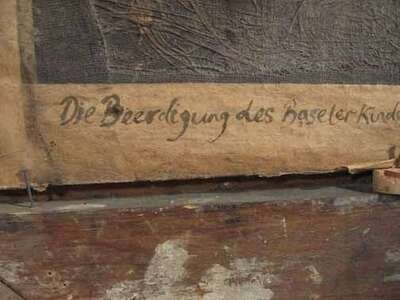 Die Beerdigung des Baseler Kinde